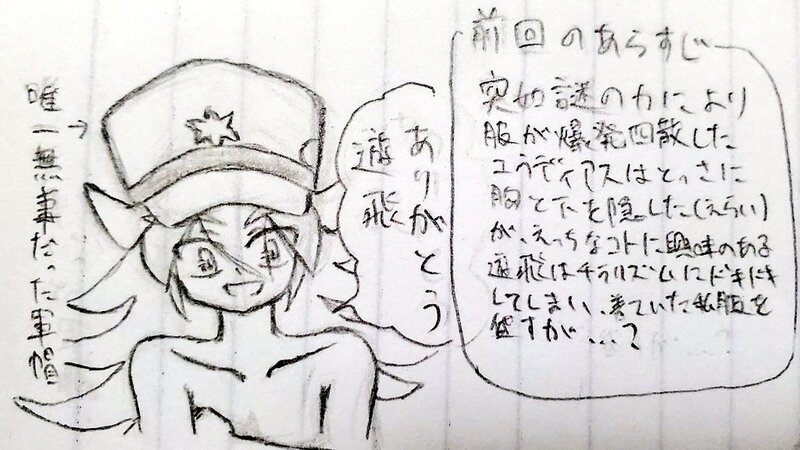 前回のあらすじ
突如謎の力により
服が爆発四散した
ユラディアスはとっさに
胸と下を隠した(えらい)
が、えっちなコトに興味のある
遊飛はチラリズムにドキドキ
してしまい、着ていた私服を
貸すが…?
ありがとう
遊飛
唯一無事だった軍帽→